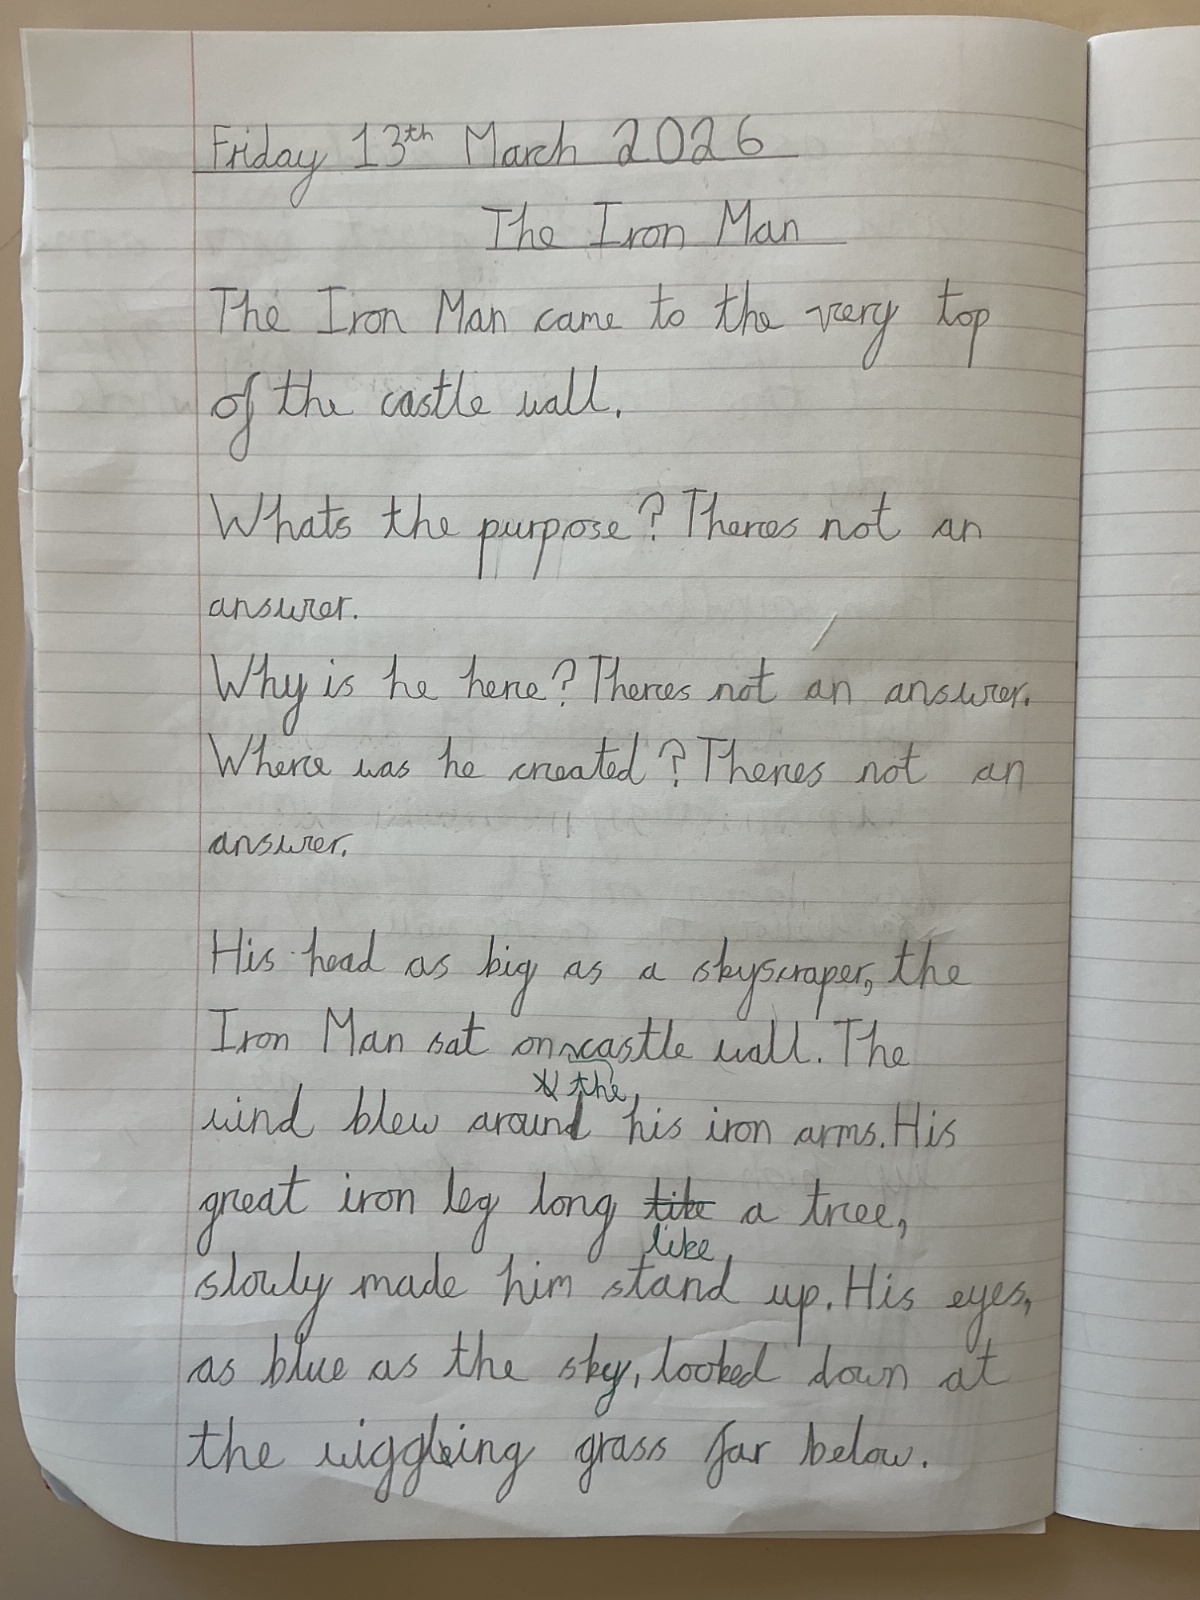 Friday 13th March 2026
The Iron Man
The Iron Man came to the very top
of the castle wall.
Whats the purpose? Theres not an
answer.
Why is he here? Theres not an answer.
Where was he created? Theres not an
answer.
His head as big as a skyscraper, the
Iron Man sat on castle wall. The
the
wind blew around his iron arms. His
great iron leg long like a tree,
like
slowly made him stand up. His eyes,
as blue as the sky, looked down at
the wiggleing grass far below.